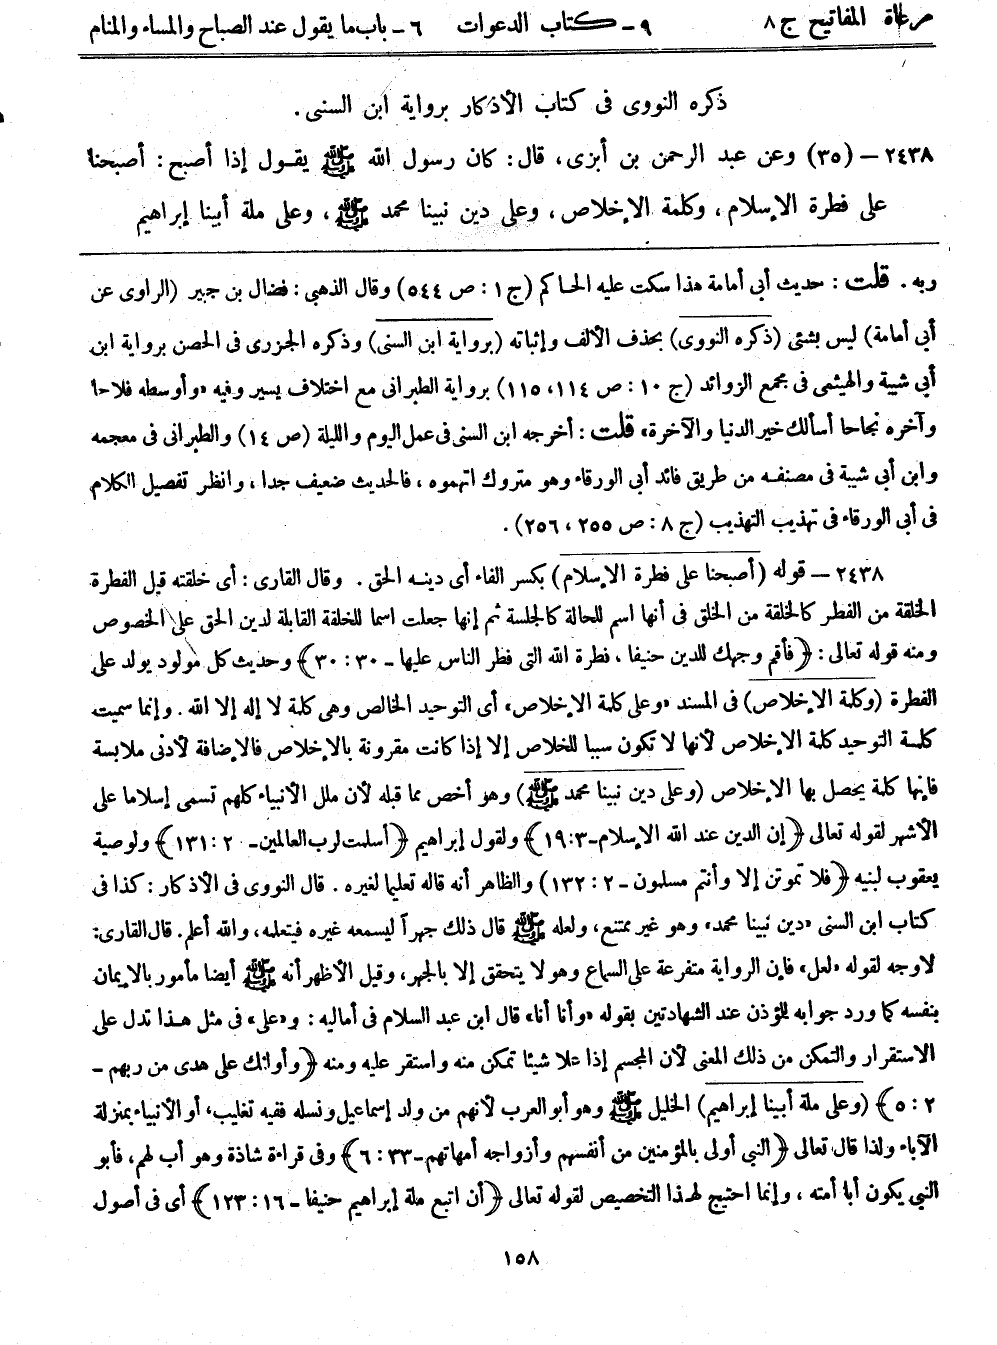 مرعاة المفاتيح ج ٨ ٩ - كتاب الدعوات ٦ - باب ما يقول عند الصباح والمساء والمنام
ذكره النووى فى كتاب الأذكار برواية ابن السنى .
٢٤٣٨ – (٣٥) وعن عبد الرحمن بن أبزى ، قال : كان رسول الله ﷺ يقول إذا أصبح : أصبحنا
على فطرة الإسلام ، وكلمة الإخلاص ، وعلى دين نبينا محمد ﷺ ، وعلى ملة أبينا إبراهيم
ربه . قلت : حديث أبى أمامة هذا سكت عليه الحاكم (ج ١ : ص ٥٤٤) وقال الذهبى : فضال بن جبير (الراوى عن
أبى أمامة) ليس بشئى (ذكره النووى) بحذف الألف وإثباته (برواية ابن السنى) وذكره الجزرى فى الحصن برواية ابن
أبى شيبة والهيثمى فى مجمع الزوائد (ج ١٠ : ص ١١٤ ، ١١٥) برواية الطبرانى مع اختلاف يسير وفيه «وأوسطه فلاحا
وآخره نجاحا أسألك خير الدنيا والآخرة» قلت : أخرجه ابن السنى فى عمل اليوم والليلة (ص ١٤) والطبرانى فى معجمه
وابن أبى شيبة فى مصنفه من طريق فائد أبى الورقاء وهو متروك اتهموه ، فالحديث ضعيف جدا ، وانظر تفصيل الكلام
فى أبى الورقاء فى تهذيب التهذيب (ج ٨ : ص ٢٥٥ ، ٢٥٦) .
٢٤٣٨ – قوله (أصبحنا على فطرة الإسلام) بكسر الفاء أى دينه الحق . وقال القارى : أى خلقته قيل الفطرة
الخلقة من الفطر كالخلقة من الخلق فى أنها اسم للحالة كالجلسة ثم إنها جعلت اسما للخلقة القابلة لدين الحق على الخصوص
ومنه قوله تعالى : ﴿فأقم وجهك للدين حنيفا ، فطرة الله التى فطر الناس عليها - ٣٠ : ٣٠﴾ وحديث كل مولود يولد على
الفطرة (وكلمة الإخلاص) فى المسند «وعلى كلمة الإخلاص» أى التوحيد الخالص وهى كلمة لا إله إلا الله . وإنما سميت
كلمة التوحيد كلمة الإخلاص لأنها لا تكون سببا للخلاص إلا إذا كانت مقرونة بالإخلاص فالإضافة لأدنى ملابسة
فإنها كلمة يحصل بها الإخلاص (وعلى دين نبينا محمد ﷺ) وهو أخص مما قبله لأن ملل الأنبياء كلهم تسمى إسلاما على
الأشهر لقوله تعالى ﴿إن الدين عند الله الإسلام - ٣ : ١٩﴾ ولقول إبراهيم ﴿أسلمت لرب العالمين - ٢ : ١٣١﴾ ولوصية
يعقوب لبنيه ﴿فلا تموتن إلا وأنتم مسلمون - ٢ : ١٣٢) والظاهر أنه قاله تعليما لغيره . قال النووى فى الأذكار : كذا فى
كتاب ابن السنى «دين نبينا محمد» وهو غير ممتنع ، ولعله ﷺ قال ذلك جهراً ليسمعه غيره فيتعلمه ، والله أعلم . قال القارى :
لاوجه لقوله «لعل» فإن الرواية متفرعة على السماع وهو لا يتحقق إلا بالجهر ، وقيل الأظهر أنه ﷺ أيضا مأمور بالإيمان
بنفسه كما ورد جوابه للمؤذن عند الشهادتين بقوله «وأنا أنا» قال ابن عبد السلام فى أماليه : و«على» فى مثل هذا تدل على
الاستقرار والتمكن من ذلك المعنى لأن المجسم إذا علا شيئا تمكن منه واستقر عليه ومنه ﴿وأولئك على هدى من ربهم -
٢ : ٥﴾ (وعلى ملة أبينا إبراهيم) الخليل ﷺ وهو أبو العرب لأنهم من ولد إسماعيل ونسله ففيه تغليب ، أو الأنبياء بمنزلة
الآباء ولذا قال تعالى ﴿النبى أولى بالمؤمنين من أنفسهم وأزواجه أمهاتهم - ٣٣ : ٦﴾ وفى قراءة شاذة وهو أب لهم ، فأبو
النبى يكون أبا أمته ، وإنما احتيج لهذا التخصيص لقوله تعالى ﴿أن اتبع ملة إبراهيم حنيفا - ١٦ : ١٢٣﴾ أى فى أصول
١٥٨